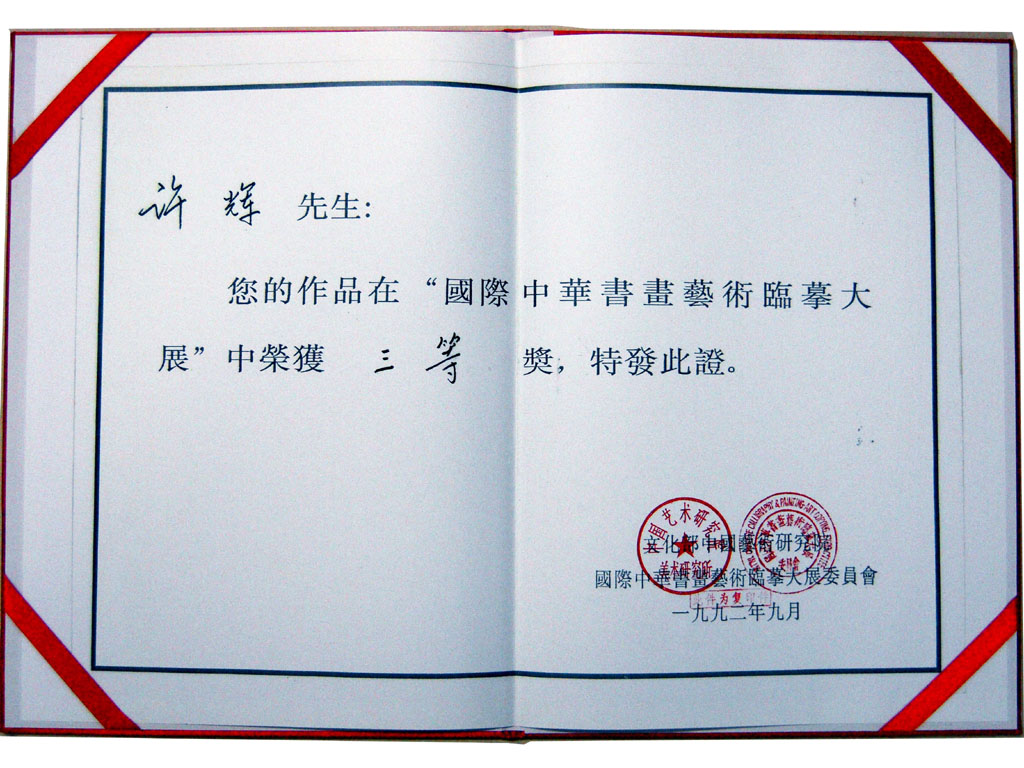 许 辉 先生:
您的作品在“國際中華書畫藝術臨摹大
展”中榮獲 三等 獎，特發此證。
文化部中國藝術研究院
國際中華書畫藝術臨摹大展委員會
一九九二年九月
国艺术研究
美术研究所
件为复印件